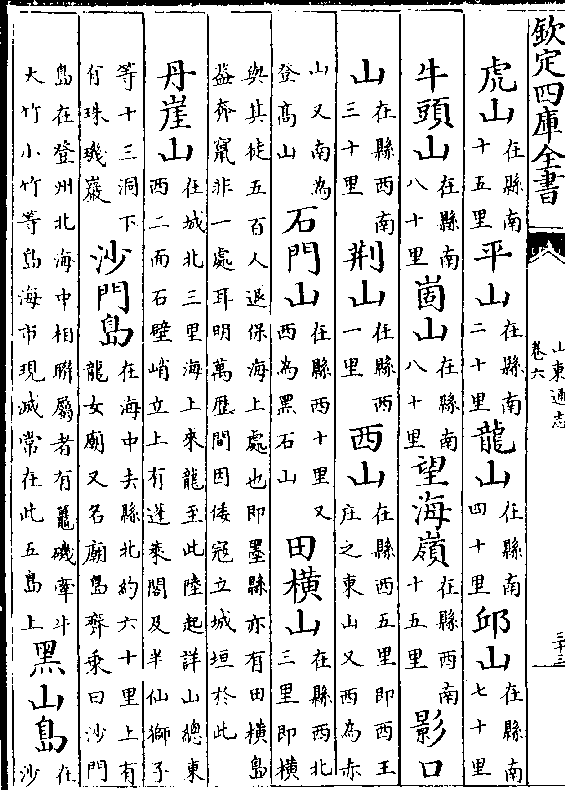 欽定四庫全書
山東通志
卷六
三十三
虎山在縣南十五里平山在縣南二十里龍山在縣南四十里邱山在縣南七十里
牛頭山在縣南八十里崮山在縣南八十里望海嶺在縣西南十五里影口
山在縣西南三十里荆山在縣西一里西山在縣西五里即西王庄之東山又西為赤
山又南為登髙山石門山在縣西十里又西為黑石山田横山在縣西北三里即横
與其徒五百人退保海上處也即墨縣亦有田横島益齊竄非一處耳明萬厯間因倭冦立城垣於此
丹崖山在城北三里海上來龍至此陸起詳山總東西二面石壁峭立上有蓬萊閣及半仙獅子
等十三洞下有珠璣巖沙門島在海中去縣北約六十里上有龍女廟又名廟島齊乘曰沙門
島在登州北海中相聨屬者有鼉磯牽牛大竹小竹等島海市現滅常在此五島上黑山島在沙